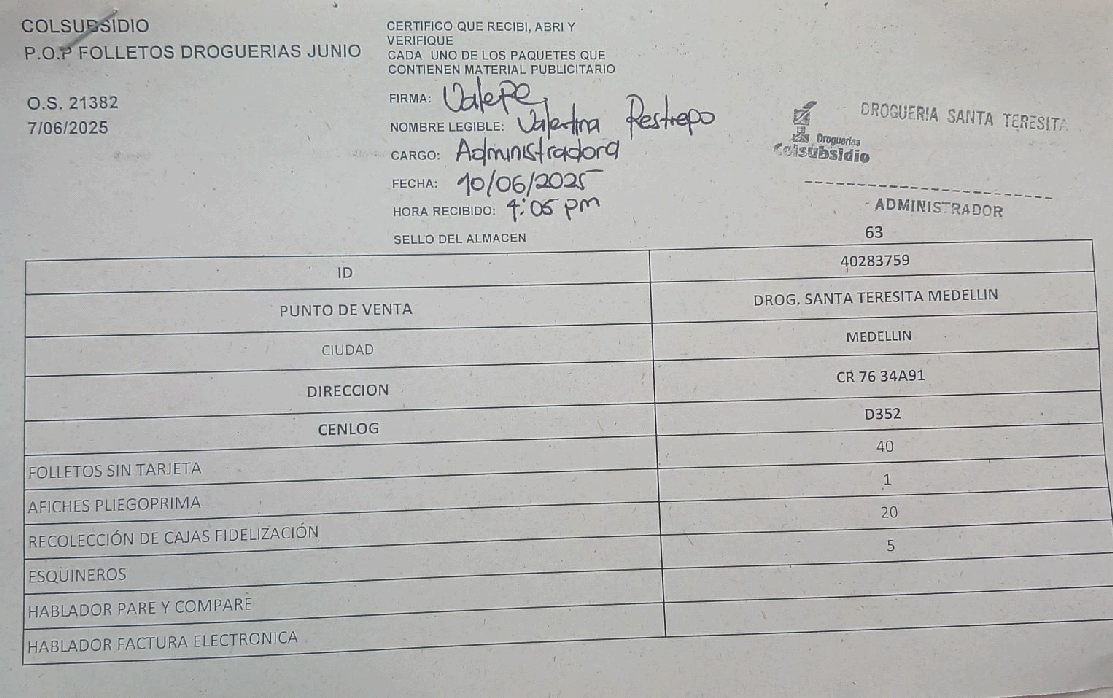 COLSUBSIDIO
P.O.P FOLLETOS DROGUERIAS JUNIO
O.S. 21382
7/06/2025
CERTIFICO QUE RECIBI, ABRI Y
VERIFIQUE
CADA UNO DE LOS PAQUETES QUE
CONTIENEN MATERIAL PUBLICITARIO
FIRMA: ValeRe
NOMBRE LEGIBLE: Valentina Restrepo
CARGO: Administradora
FECHA: 10/06/2025
HORA RECIBIDO: 4:05 pm
SELLO DEL ALMACEN
DROGUERIA SANTA TERESITA
Droguerías
Colsubsidio
ADMINISTRADOR
63
ID 40283759
PUNTO DE VENTA DROG. SANTA TERESITA MEDELLIN
CIUDAD MEDELLIN
DIRECCION CR 76 34A91
CENLOG D352
FOLLETOS SIN TARJETA 40
AFICHES PLIEGOPRIMA 1
RECOLECCIÓN DE CAJAS FIDELIZACIÓN 20
ESQUINEROS 5
HABLADOR PARE Y COMPARE
HABLADOR FACTURA ELECTRONICA